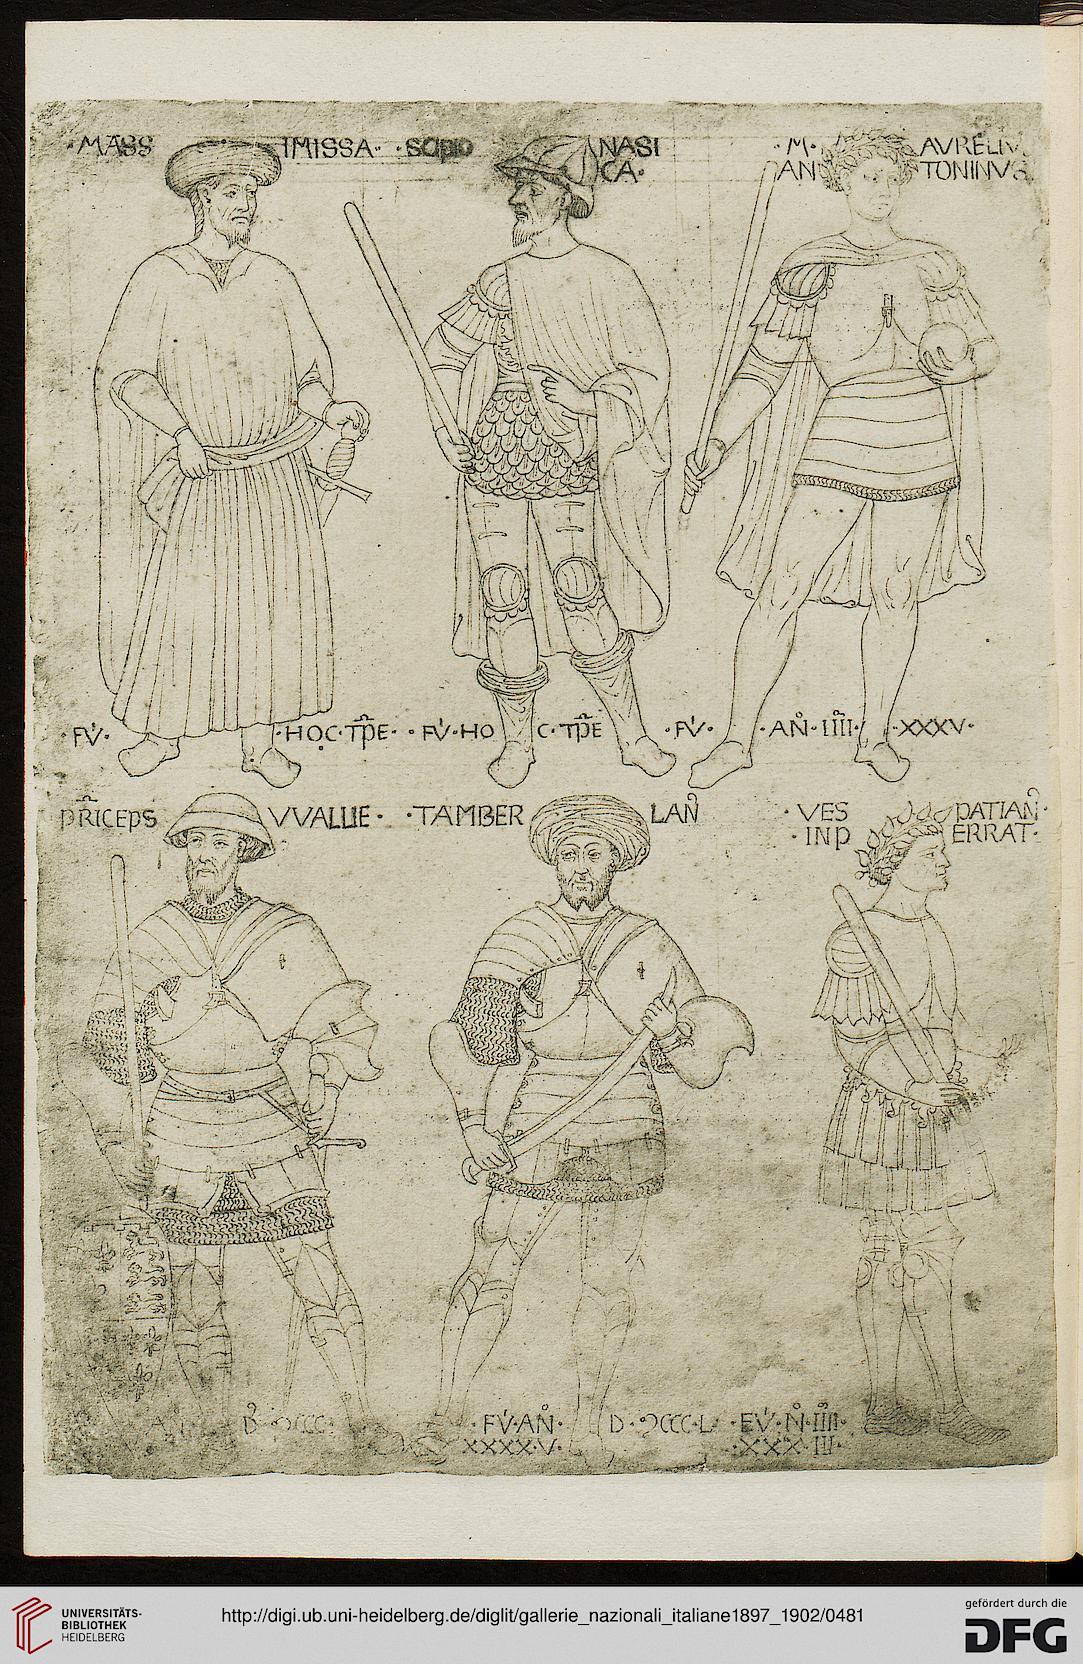 ·MASS IMISSA· ·SCIPIO NASI ·M· AVRELIV
CA· AN TONINVS
·FV̇· ·HOC·TP̄E· ·FV̇·HO C·TP̄E ·FV̇· ·AN̊·IIII· ·XXXV·
PR̄ICEPS VVALLIE· ·TAMBER LAN̊ ·VES PATIAN̊·
·INP ERRAT·
D̊·ƆCCC· ·FV̇·AN̊· D·ƆCCC·L· ·FV̇·N̊·IIII·
XXXX·V· ·XXX·III·
UNIVERSITÄTS-
BIBLIOTHEK
HEIDELBERG
http://digi.ub.uni-heidelberg.de/diglit/gallerie_nazionali_italiane1897_1902/0481
gefördert durch die
DFG